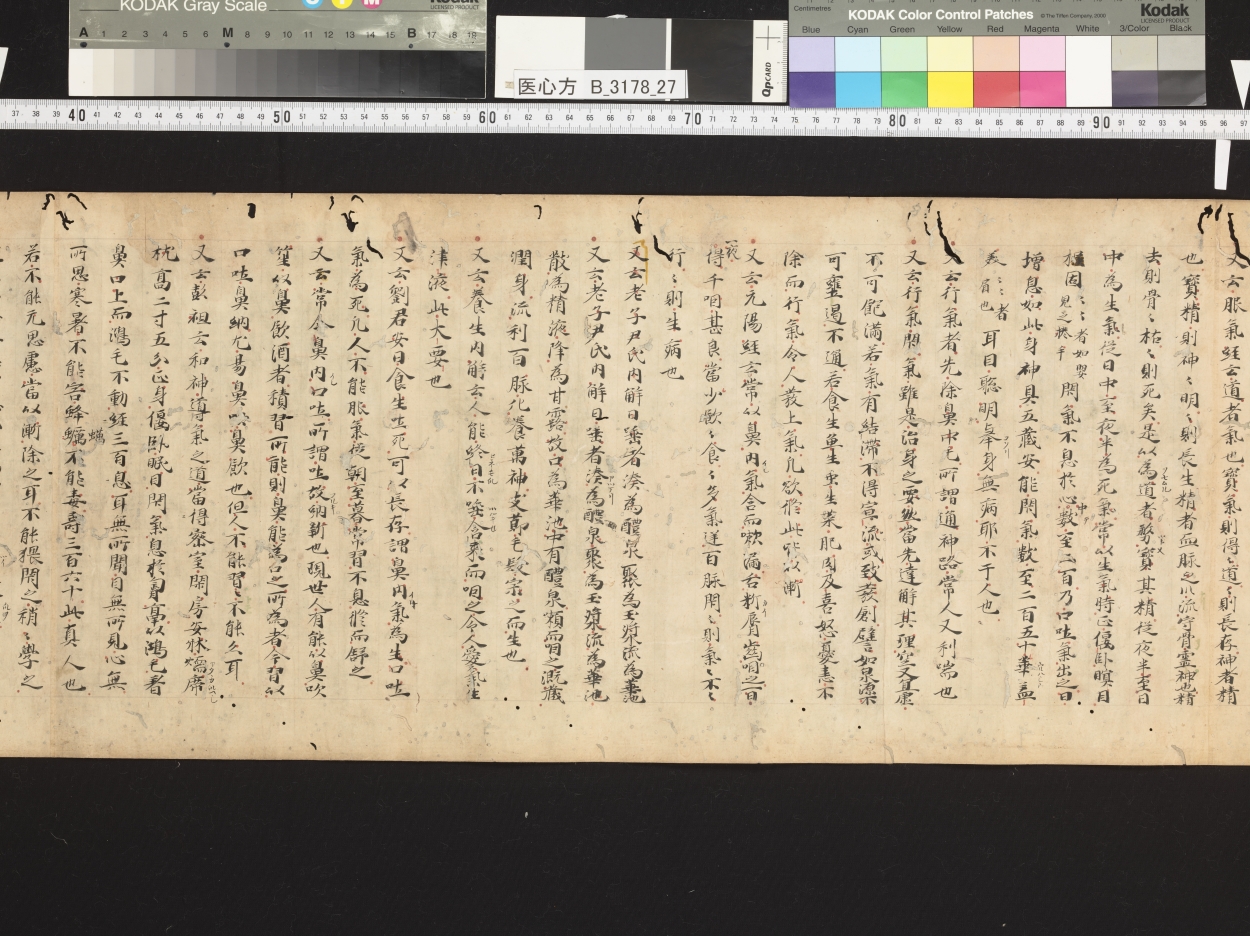 KODAK Gray Scale
Kodak
LICENSED PRODUCT
A 1 2 3 4 5 6 M 8 9 10 11 12 13 14 15 B 17 18 19
医心方 B_3178_27
QpCARD
Centimetres
KODAK Color Control Patches
© The Tiffen Company, 2000
Kodak
LICENSED PRODUCT
Blue Cyan Green Yellow Red Magenta White 3/Color Black
37 38 39 40 41 42 43 44 45 46 47 48 49 50 51 52 53 54 55 56 57 58 59 60 61 62 63 64 65 66 67 68 69 70 71 72 73 74 75 76 77 78 79 80 81 82 83 84 85 86 87 88 89 90 91 92 93 94 95 96 97
又云服氣經云道者氣也寶氣則得〻道〻則長存神者精
也寶精則神〻明〻則長生精者血脉之川流守骨靈神也精
去則骨〻枯〻則死矣是以為道者務寶其精從夜半至日
中為生氣從日中至夜半為死氣常以生氣時正偃卧瞑目
握固〻〻者如嬰兒之捲手閇氣不息於心數至二百乃口吐氣出之日
增息如此身神具五藏安能閇氣數至二百五十華蓋
美〻〻者眉也耳目聰明舉身無病耶不干人也
又云行氣者先除鼻中毛所謂通神路常人又利喘也
又云行氣閇氣雖是治身之要然當先達解其理空又宜虛
不可飽滿若氣有結滯不得宣流或致發創譬如泉源
可壅遏不通若食生魚生虫生菜肥肉及喜怒憂恚不
除而行氣令人發上氣凡欲修此皆以漸
又云元陽經云常以鼻内氣含而嗽滿舌斷脣齒咽之一日
一夜得千咽甚良當少飲〻食〻多氣逆百脉閇〻則氣〻不〻
行〻則生病也
又云老子尹氏内解曰唾者湊為醴泉聚為玉漿流為華池
散為精液降為甘露故口為華池中有醴泉漱而咽之溉藏
潤身流利百脉化養萬神支節毛髮宗之而生也
又云養生内解云人能終日不唾含棗而咽之令人愛氣生
津液此大要也
又云劉君安曰食生吐死可以長存謂鼻内氣為生口吐
氣為死凡人不能服氣從朝至暮常習不息徐而舒之
又云常令鼻内口吐所謂吐故納新也現世人有能以鼻吹
笙以鼻飲酒者積習所能則鼻能為口之所為者今習以
口吐鼻納尤易鼻吹鼻飲也但人不能習〻不能久耳
又云彭祖云和神導氣之道當得密室閇房安牀煖席
枕高二寸五分正身偃卧眠目閇氣息於胸鬲以鴻毛著
鼻口上而鴻毛不動經三百息耳無所聞目無所見心無
所思寒暑不能害蜂蠆不能毒壽三百六十此真人也
若不能元思慮當以漸除之耳不能猥閇之稍〻學之